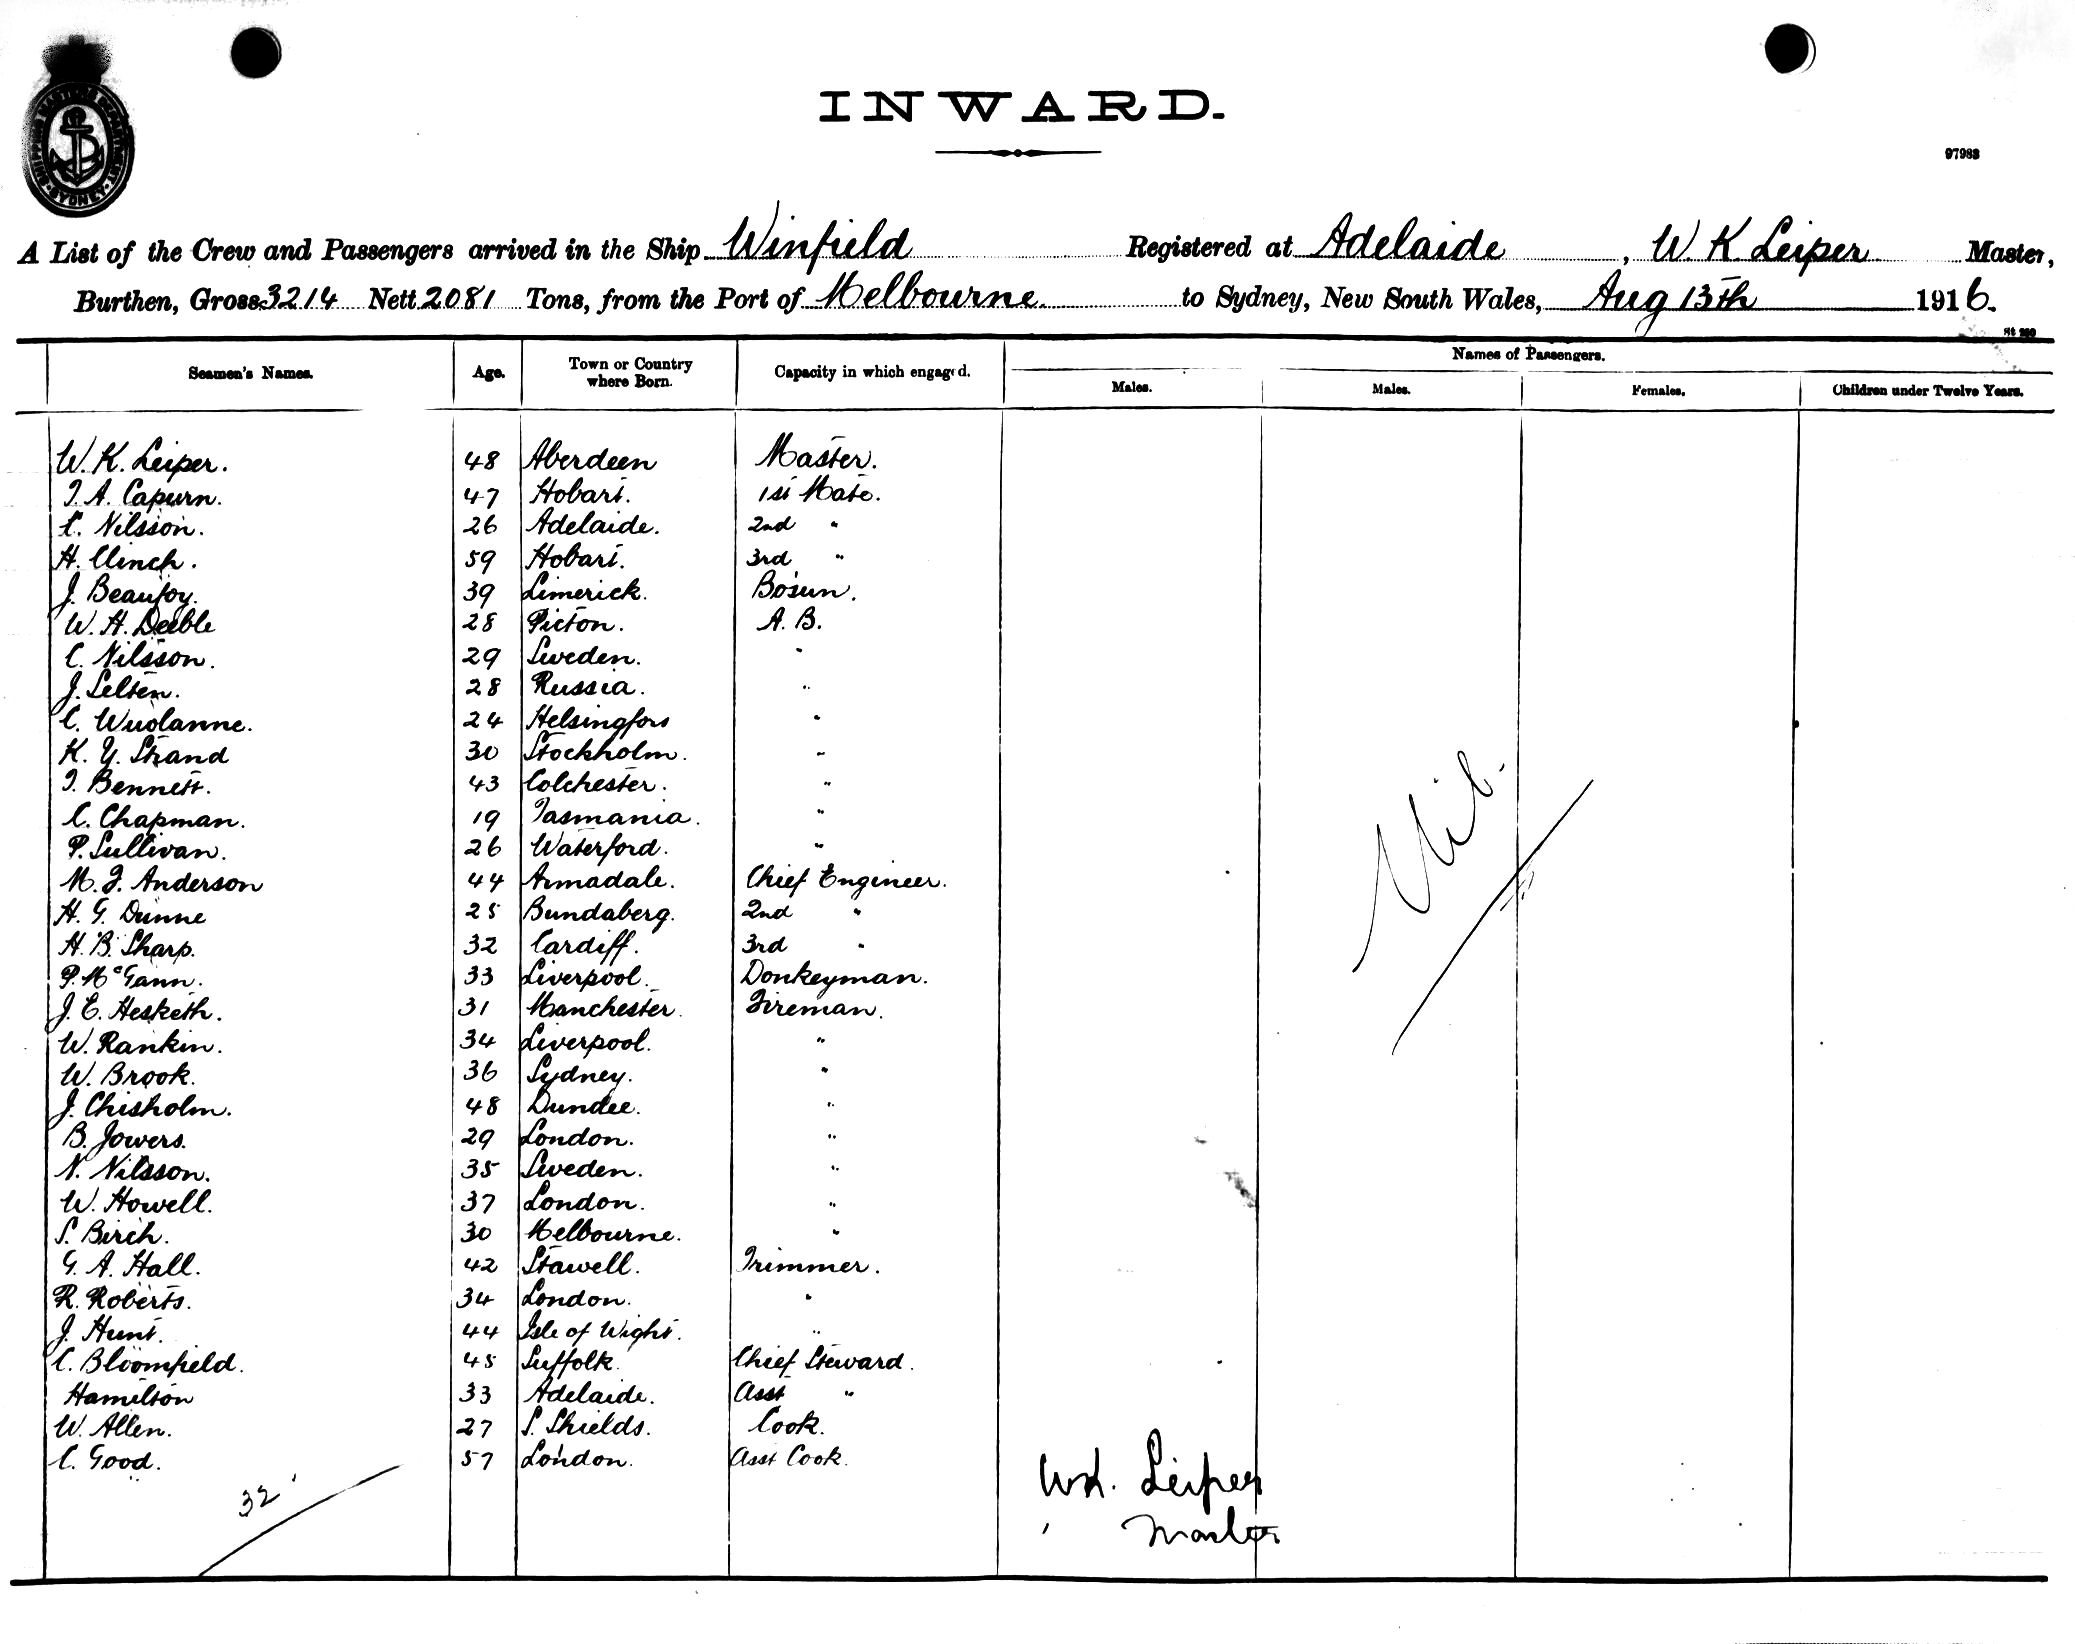 SHIPPING MASTERS DEPARTMENT SYDNEY
INWARD.
97983
A List of the Crew and Passengers arrived in the Ship Winfield Registered at Adelaide, W. K. Leiper Master,
Burthen, Gross 3214 Nett 2081 Tons, from the Port of Melbourne. to Sydney, New South Wales, Aug 13th 1916.
Names of Passengers.
Seamen's Names. Age. Town or Country where Born. Capacity in which engaged. Males. Males. Females. Children under Twelve Years.
W. K. Leiper. 48 Aberdeen Master.
T. A. Capurn. 47 Hobart. 1st Mate.
C. Nilsson. 26 Adelaide. 2nd "
H. Clinch. 59 Hobart. 3rd "
J. Beaufoy. 39 Limerick. Bosun.
W. H. Deeble 28 Picton. A. B.
C. Nilsson. 29 Sweden. "
J. Selten. 28 Russia. "
C. Wuolanne. 24 Helsingfors "
K. Y. Strand 30 Stockholm. "
T. Bennett. 43 Colchester. "
C. Chapman. 19 Tasmania. "
P. Sullivan. 26 Waterford. "
M. J. Anderson 44 Armadale. Chief Engineer.
H. G. Dunne 25 Bundaberg. 2nd "
H. B. Sharp. 32 Cardiff. 3rd "
P. McGann. 33 Liverpool. Donkeyman.
J. E. Hesketh. 31 Manchester. Fireman.
W. Rankin. 34 Liverpool. "
W. Brook. 36 Sydney. "
J. Chisholm. 48 Dundee. "
B. Jowers. 29 London. "
N. Nilsson. 35 Sweden. "
W. Howell. 37 London. "
S. Birch. 30 Melbourne. "
G. A. Hall. 42 Stawell. Trimmer.
R. Roberts. 34 London. "
J. Hunt. 44 Isle of Wight. "
C. Bloomfield. 45 Suffolk. Chief Steward.
Hamilton 33 Adelaide. Asst "
W. Allen. 27 S. Shields. Cook.
C. Good. 57 London. Asst Cook.
Nil.
32
WK. Leiper
Master